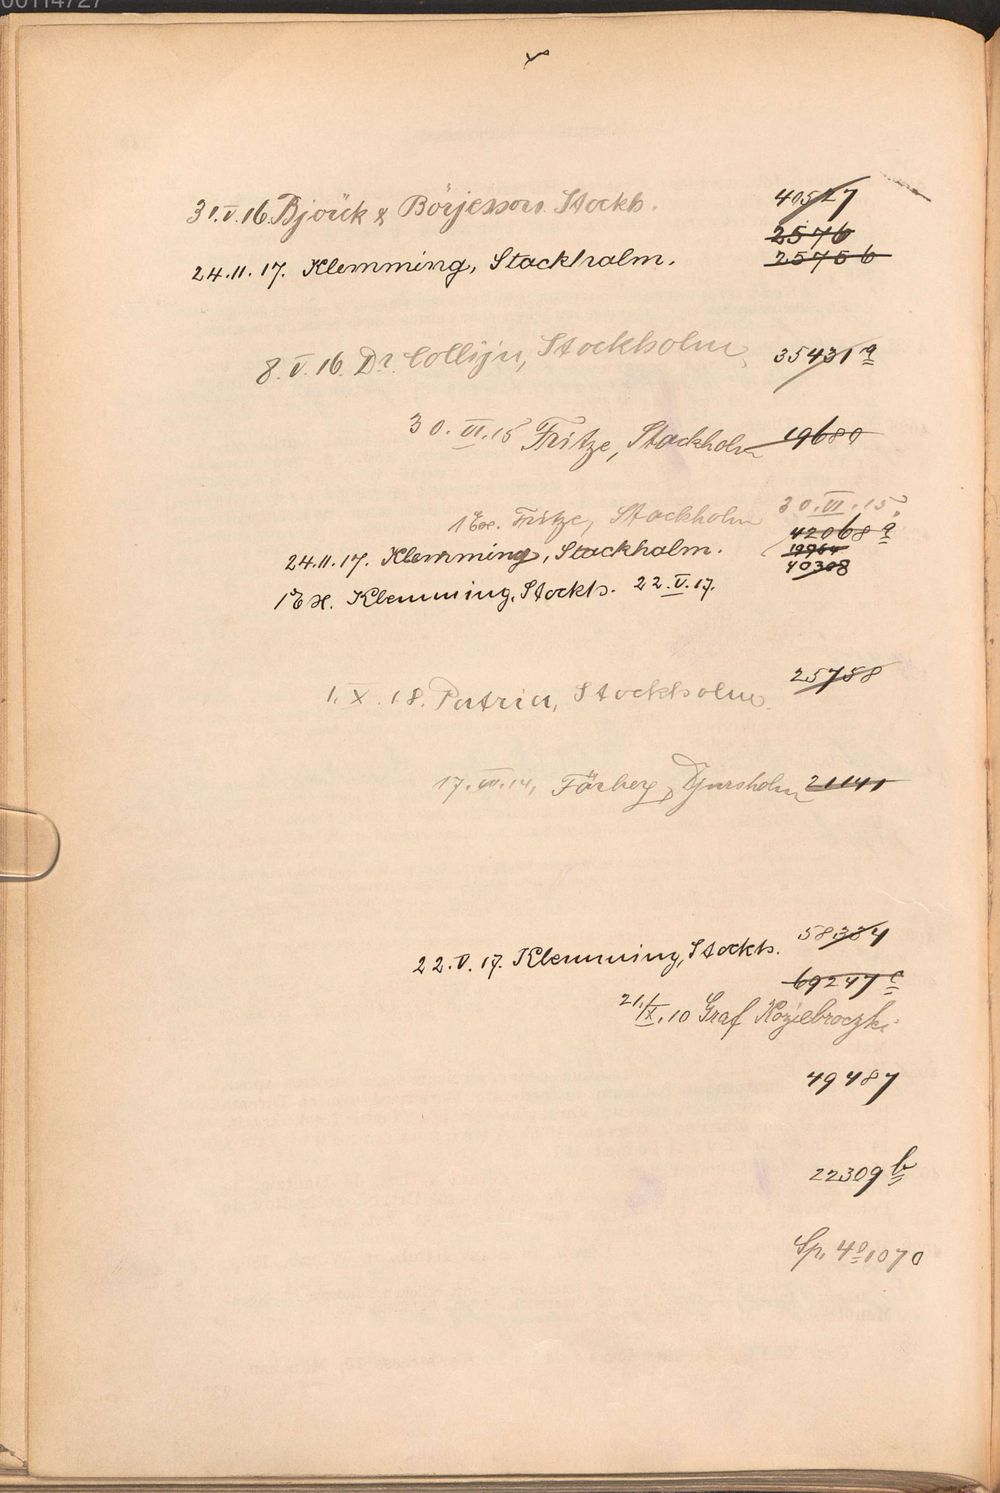 00114727
31.V.16. Björck & Börjesson. Stockh. 40527
2576
24.11.17. Klemming, Stockholm. 25756
8.V.16. Dr. Collijn, Stockholm, 35431 a
30.VI.15 Fritze, Stockholm 19680
1 Ex. Fritze, Stockholm 30.VI.15.
42068 a
24.11.17. Klemming, Stockholm. 19964
40308
1 Ex. Klemming, Stockh. 22.V.17.
25758
1.X.18. Patria, Stockholm.
17.VII.14, Färber, Djursholm 21141
58384
22.V.17. Klemming, Stockh.
69247
21./IX.10 Graf Koziebroczki
49487
22309 b
Sp. 4º 1070